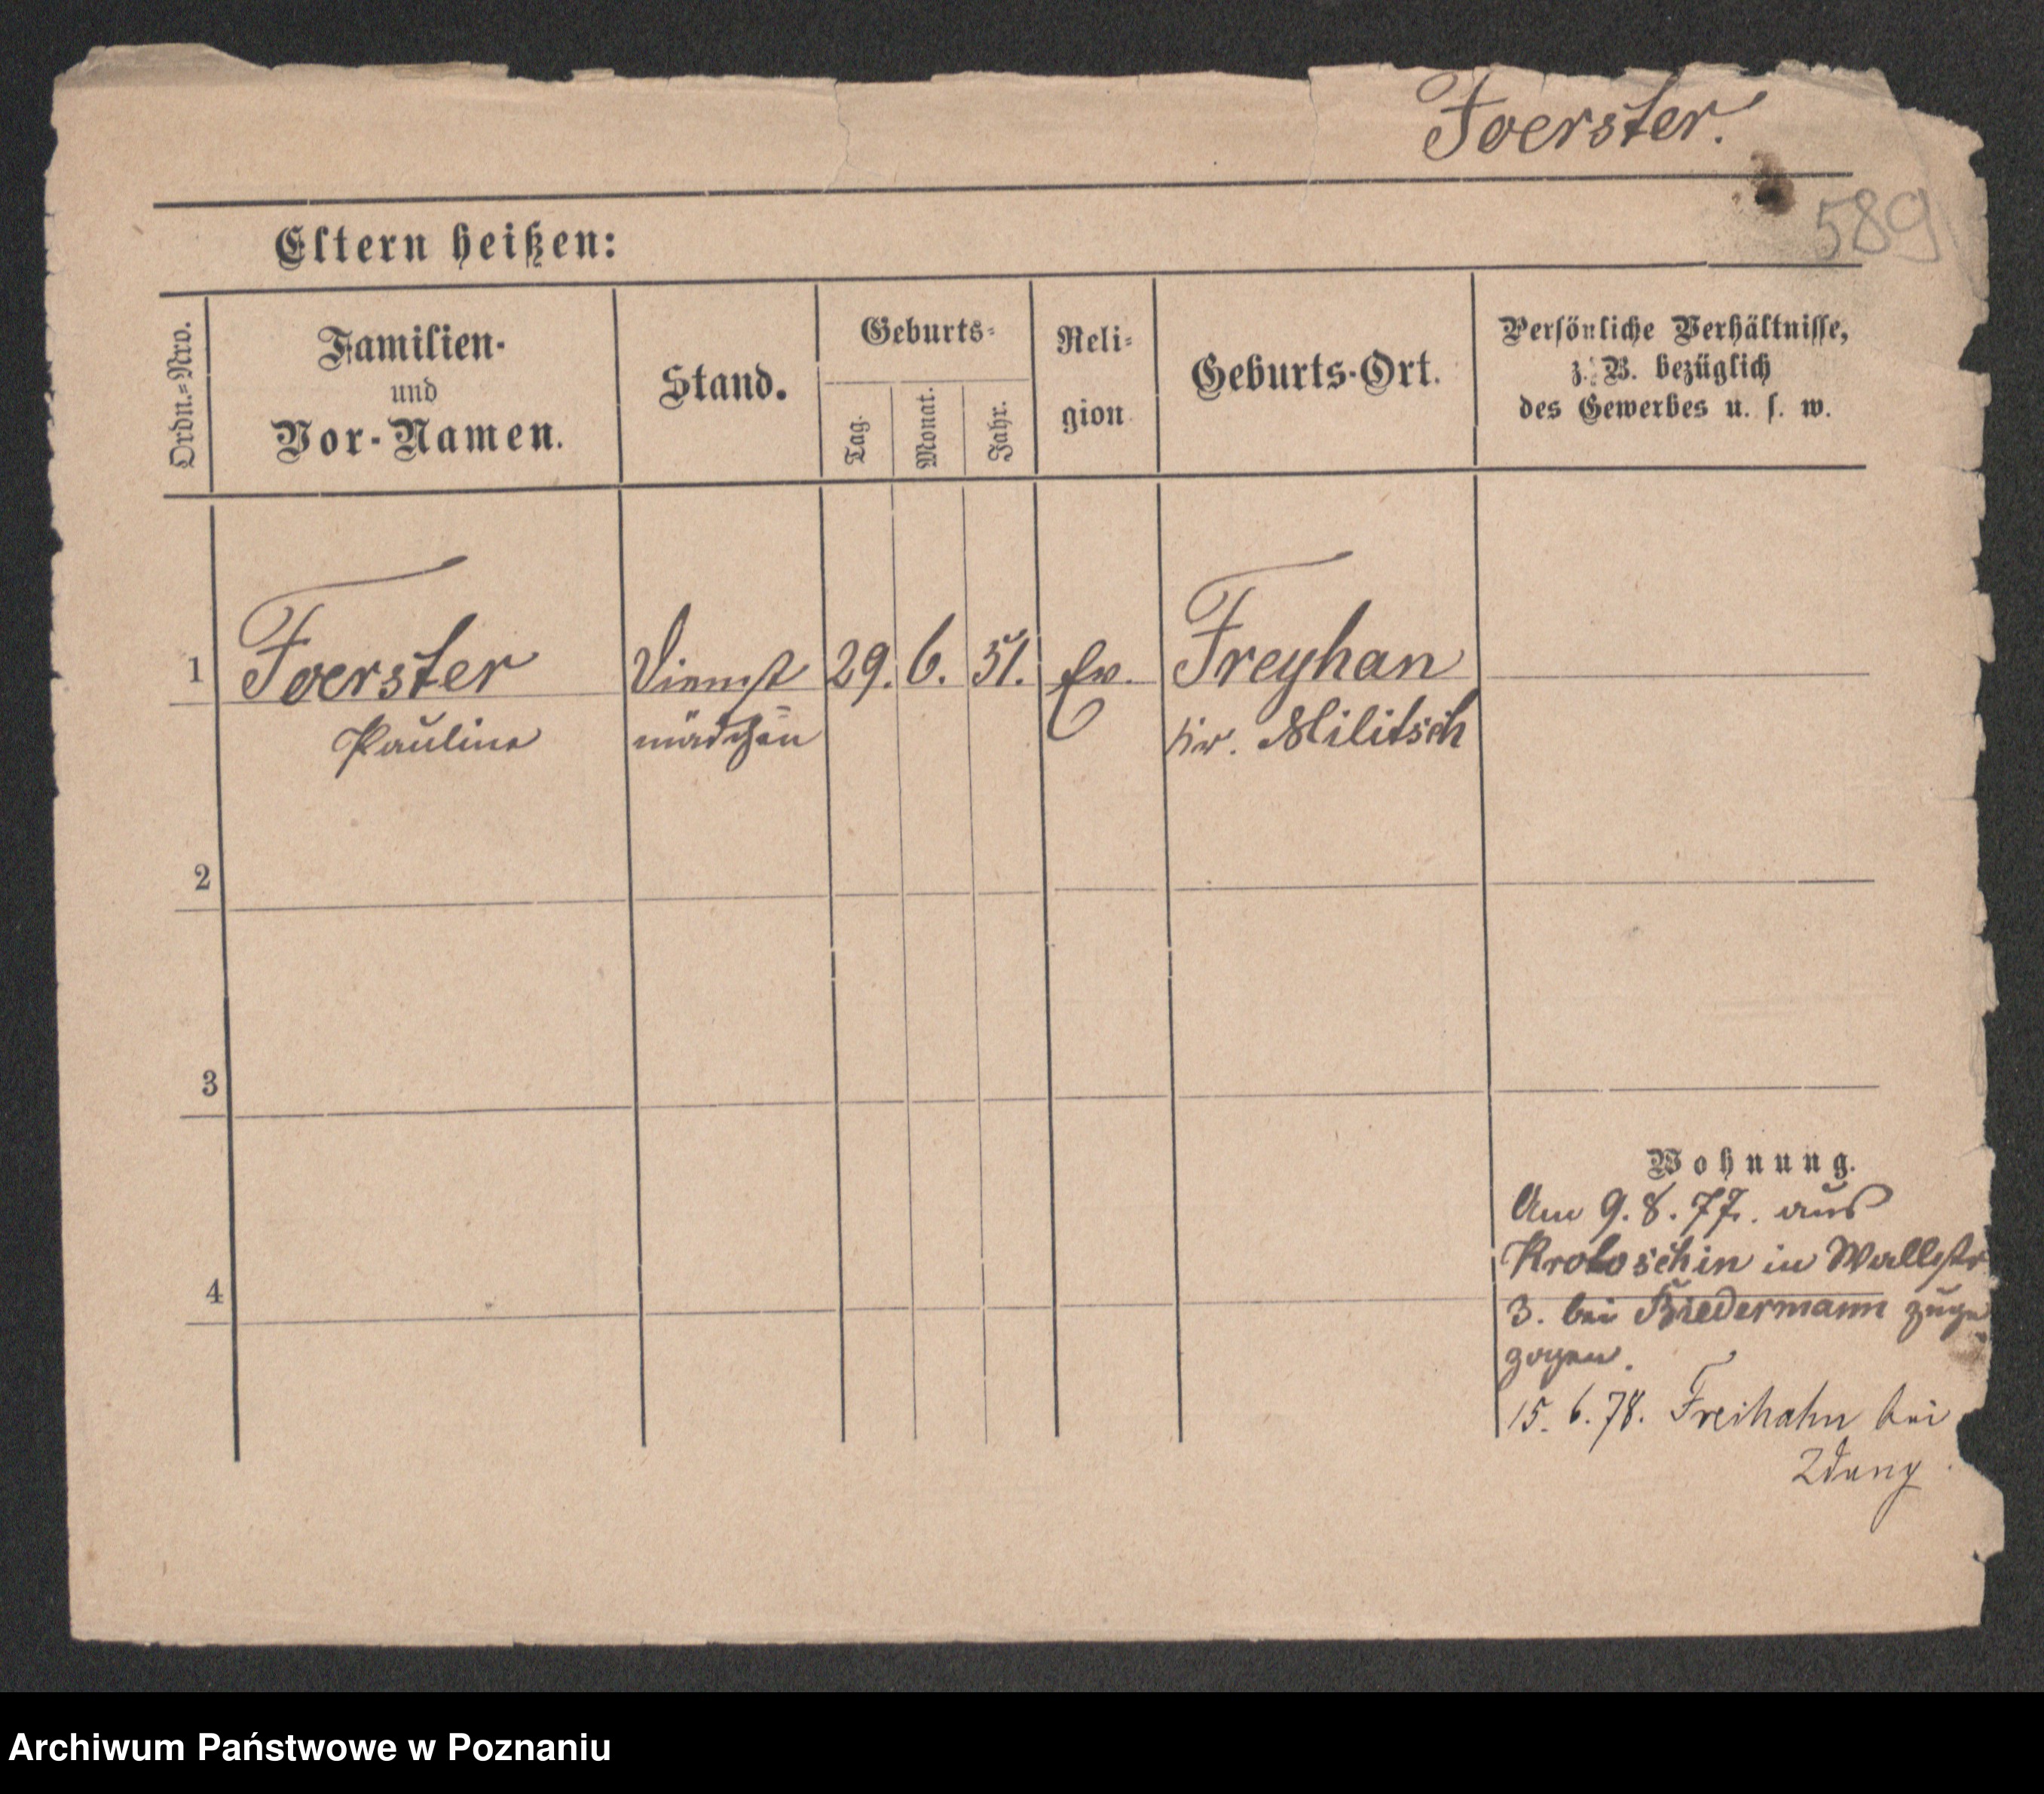 Foerster.
589
Eltern heißen:
Ordn.=Nro.
Familien-
und
Vor-Namen.
Stand.
Geburts=
Tag.
Monat.
Jahr.
Reli=
gion
Geburts-Ort.
Persönliche Verhältnisse,
z. B. bezüglich
des Gewerbes u. s. w.
1
Foerster
Pauline
Dienst
mädchen
29.
6.
51.
Ev.
Freyhan
Kr. Militsch
2
3
4
Wohnung.
Am 9. 8. 77. aus
Krotoschin in Wallstr
3. bei Biedermann zuge
zogen.
15. 6. 78. Freihahn bei
Archiwum Państwowe w Poznaniu